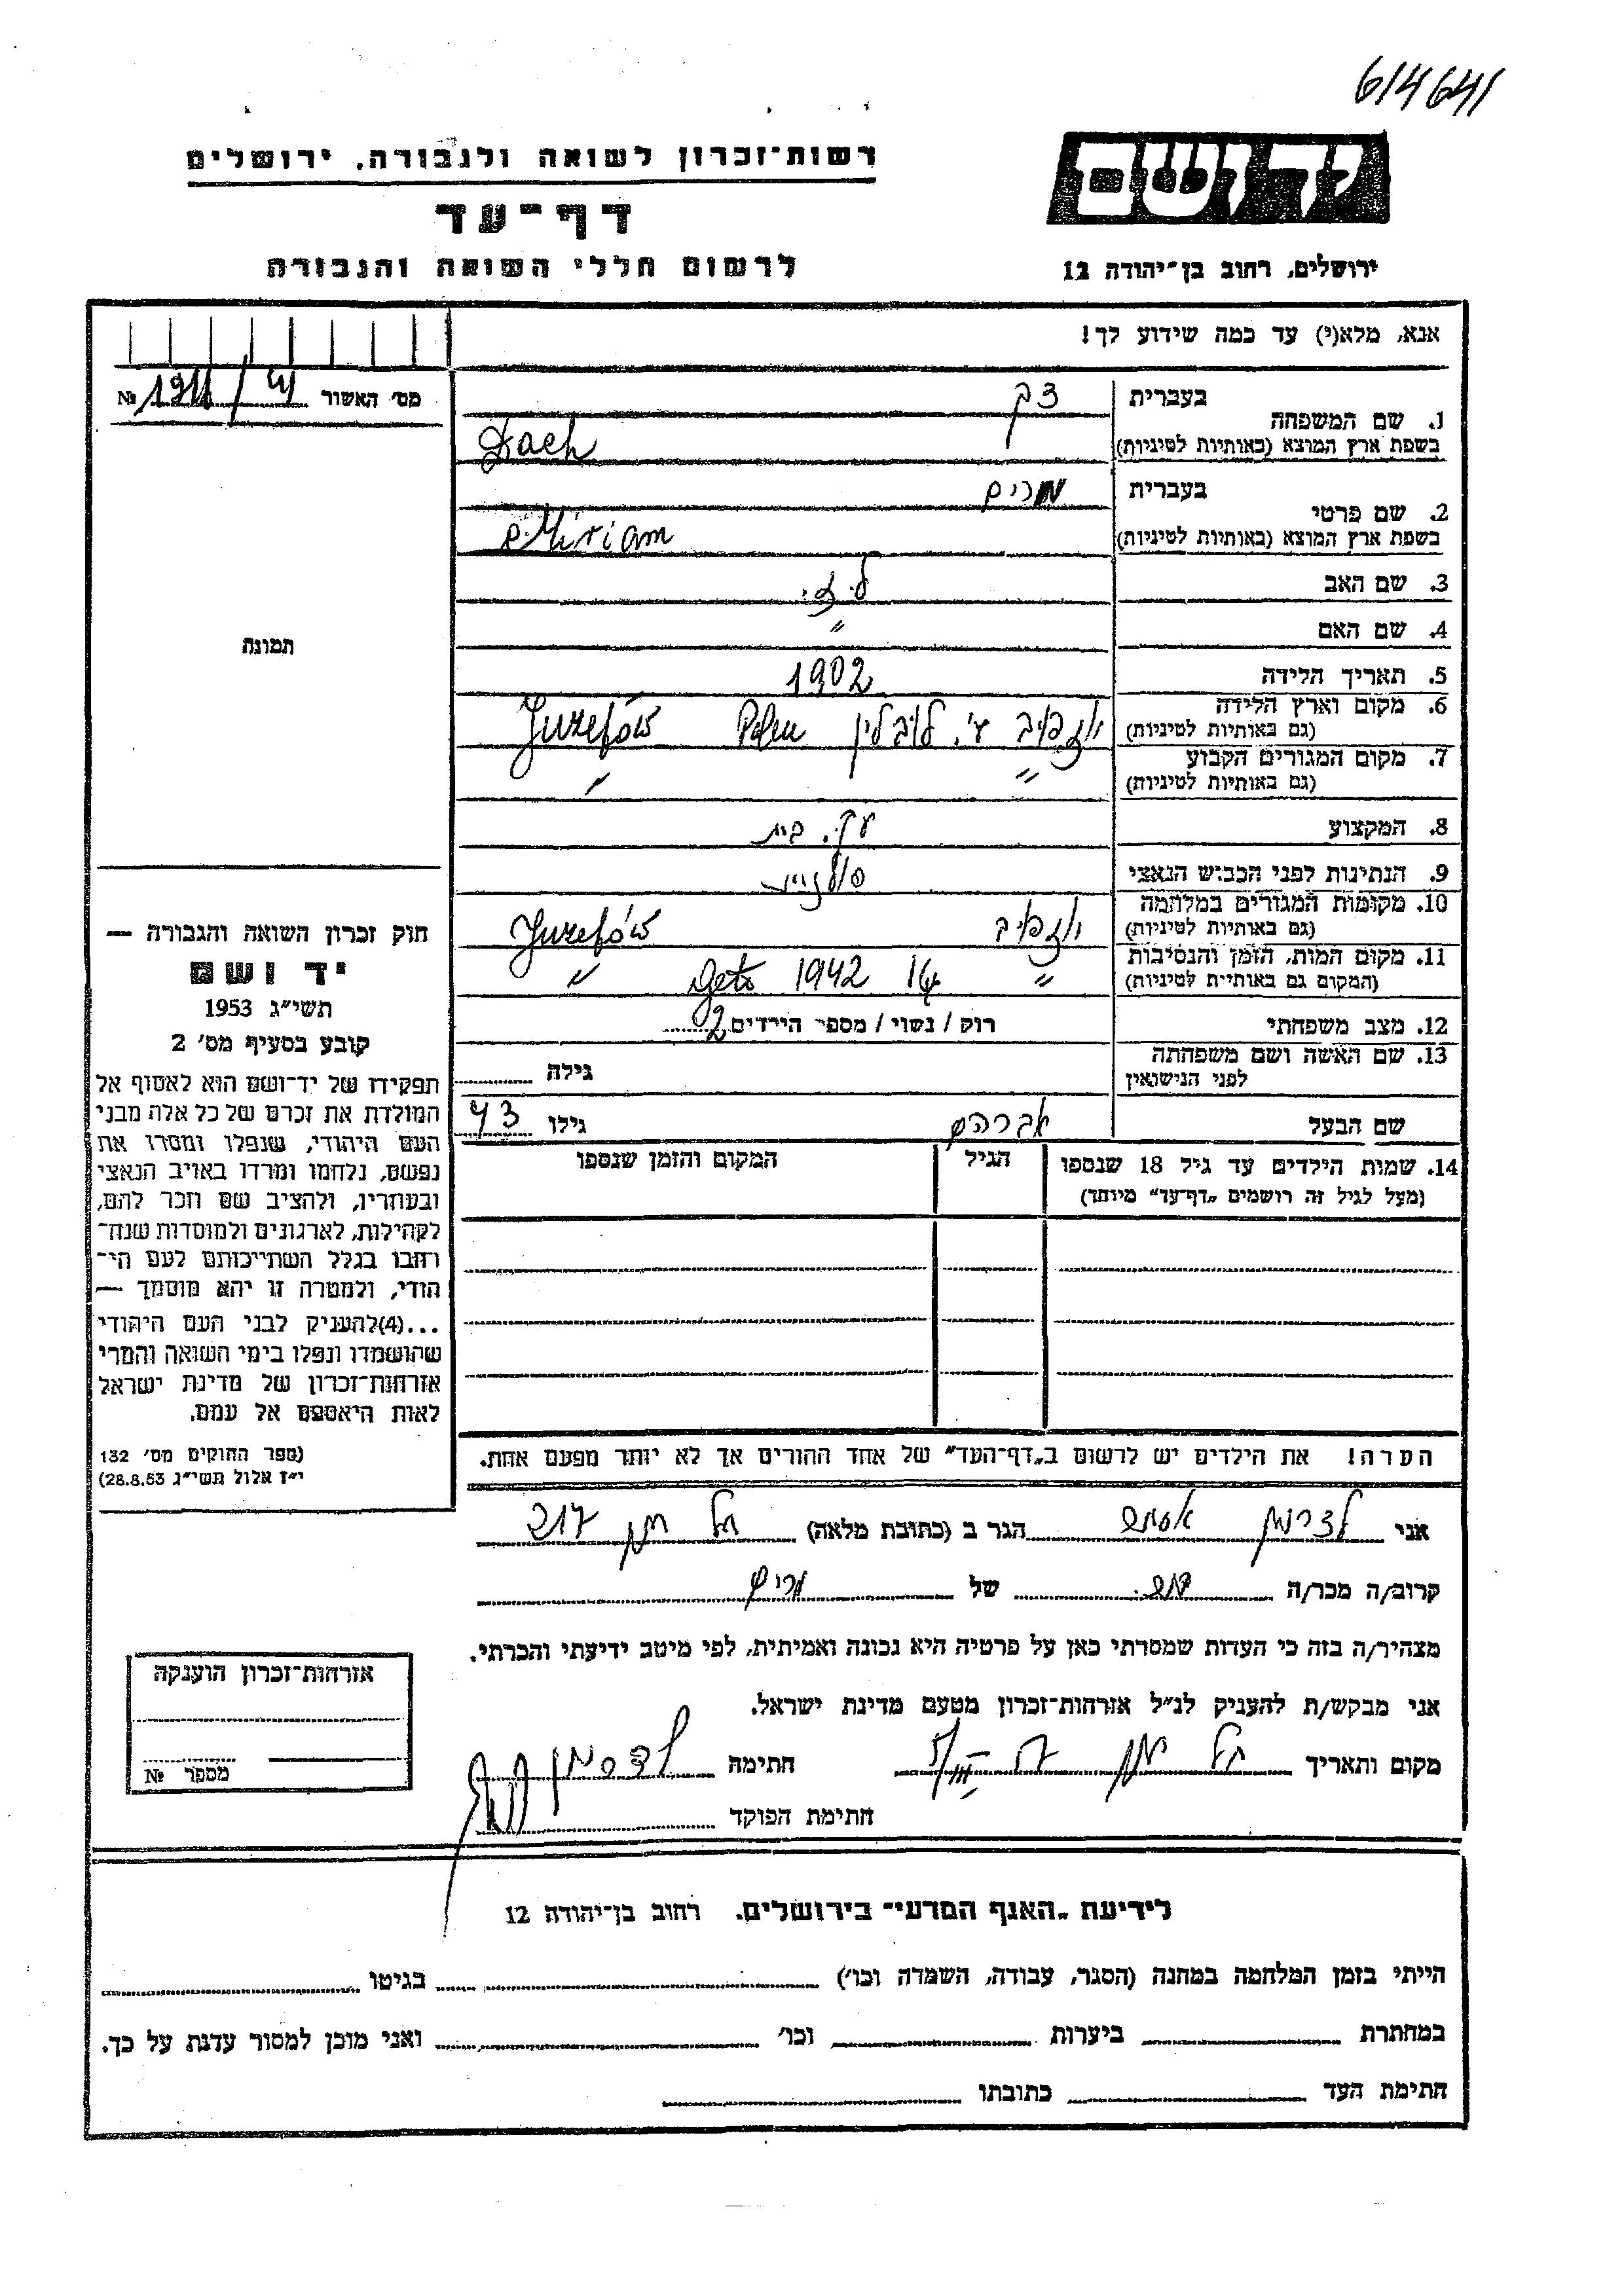 614641
רשות־זכרון לשואה ולגבורה, ירושלים
יד ושם
דף־עד
לרשום חללי השואה והגבורה
ירושלים, רחוב בן־יהודה 12
אנא, מלא(י) עד כמה שידוע לך!
מס׳ האשור №
1. שם המשפחה
בעברית
בשפת ארץ המוצא (באותיות לטיניות)
2. שם פרטי
בעברית מרים
בשפת ארץ המוצא (באותיות לטיניות) Miriam
3. שם האב ל. י.
4. שם האם "
5. תאריך הלידה 1902
6. מקום וארץ הלידה
(גם באותיות לטיניות) לובלין Polen Juzefów
7. מקום המגורים הקבוע
(גם באותיות לטיניות) " "
8. המקצוע עק. בית
9. הנתינות לפני הכבוש הנאצי פולנייה
10. מקומות המגורים במלחמה
(גם באותיות לטיניות) Juzefów
11. מקום המות, הזמן והנסיבות
(המקום גם באותיות לטיניות) " 1942 Geto "
12. מצב משפחתי רוק / נשוי / מספר הילדים 2
13. שם האשה ושם משפחתה
לפני הנישואין
גילה
שם הבעל אברהם גילו 43
14. שמות הילדים עד גיל 18 שנספו
(מעל לגיל זה רושמים „דף־עד” מיוחד)
הגיל
המקום והזמן שנספו
הערה! את הילדים יש לרשום ב„דף־העד” של אחד ההורים אך לא יותר מפעם אחת.
תמונה
חוק זכרון השואה והגבורה —
יד ושם
תשי״ג 1953
קובע בסעיף מס׳ 2
תפקידו של יד־ושם הוא לאסוף אל
המולדת את זכרם של כל אלה מבני
העם היהודי, שנפלו ומסרו את
נפשם, נלחמו ומרדו באויב הנאצי
ובעוזריו, ולהציב שם וזכר להם,
לקהילות, לארגונים ולמוסדות שנח־
רבו בגלל השתייכותם לעם הי־
הודי, ולמטרה זו יהא מוסמך —
...(4)להעניק לבני העם היהודי
שהושמדו ונפלו בימי השואה והמרי
אזרחות־זכרון של מדינת ישראל
לאות היאספם אל עמם.
(ספר החוקים מס׳ 132
י״ז אלול תשי״ג 28.8.53)
אני אסתר הגר ב (כתובת מלאה)
קרוב/ה מכר/ה של מרים
מצהיר/ה בזה כי העדות שמסרתי כאן על פרטיה היא נכונה ואמיתית, לפי מיטב ידיעתי והכרתי.
אני מבקש/ת להעניק לנ״ל אזרחות־זכרון מטעם מדינת ישראל.
מקום ותאריך חתימה
חתימת הפוקד
אזרחות־זכרון הוענקה
מספר №
לידיעת „האגף המדעי” בירושלים, רחוב בן־יהודה 12
הייתי בזמן המלחמה במחנה (הסגר, עבודה, השמדה וכו׳) בגיטו
במחתרת ביערות וכו׳ ואני מוכן למסור עדות על כך.
חתימת העד כתובתו